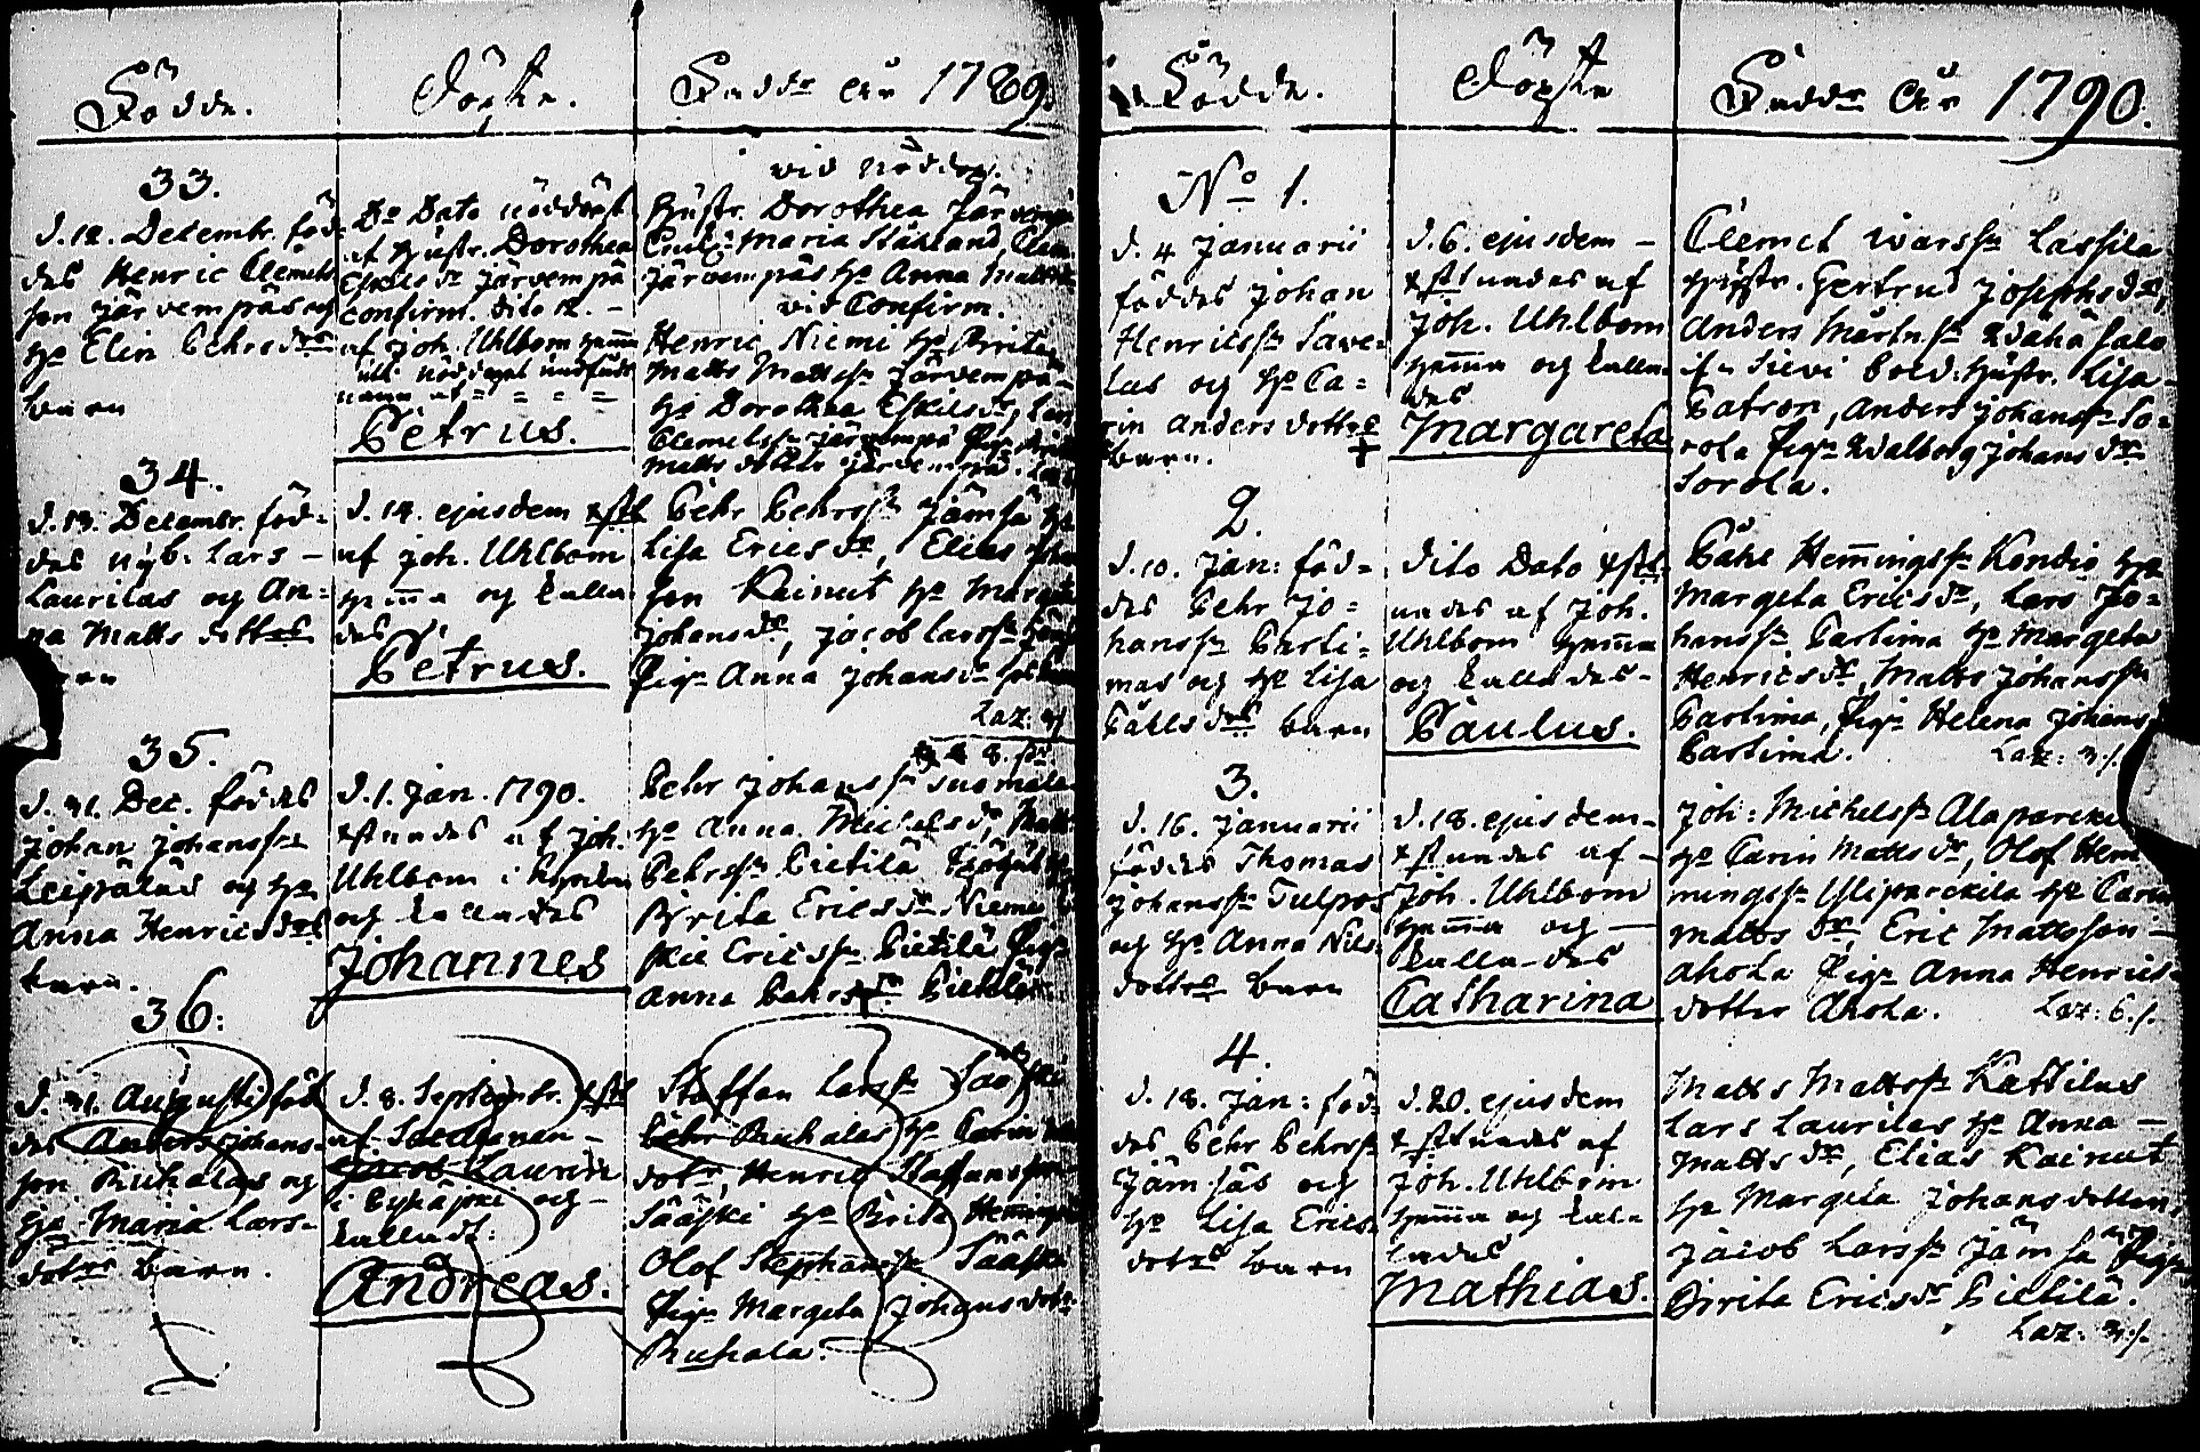 Födde.
Döpte.
Fadde År 1789.
33.
d. 12. Decembr. föd=
des Henric Clemets
son Järvenpäs og
h:o Elin Pehrsdrs
barn
D:o Dato nöddöpt
af hustr. Dorothea
Eskils dr Järvempä
confirm. dito 12. –
af Joh. Uhlbom hemma
namn af = = = =
Petrus.
vid nöddop.
hustr. Dorothea Järvenpä
Maria Ståhland,
Järvempäs h:o Anna Matts
vid Confirm.
Henric Niemi h:o Brita
Matts Mattss:n Järvempä
h:o Dorothea Eskilsdr,
Clemetss:n Järvempä Pig:
Matts dotter Järvempä.
34.
d. 13. Decembr. föd=
des nyb: Lars –
Laurilas og An=
na Matts dotters
d. 14. ejusdem xstl
af Joh. Uhlbom
hemma og kalla
des
Petrus.
Pehr Pehrss:n Jämsä h:o
Lisa Ericsdr, Elias
son Kainut h:o Margeta
Johansdr, Jacob Larss:n
Pig:n Anna Johansdr
Laz: 3/
8. s:r
35.
d. 31. Dec. föddes
Johan Johanss:n
Leipäläs og h:o
Anna Henricsdrs
barn.
d. 1. Jan. 1790.
xstnades af Joh.
Uhlbom i kyrckan
og kallades
Johannes
Pehr Johanss:n Suomala
h:o Anna Michelsdr, Matts
Pehrss:n Pietilä
Brita Ericsdr Niemi
Ericss:n Pietilä Pig:n
Anna Pehrsdr Pietilä
36:
d. 31. Augusti föd
des Anders Johans=
son Ruhalas og
h:o Maria Lars=
dotrs barn.
d. 8. Septembr. xstl
af Sacellanen –
Jacob Laurin
i Byskäpet og –
kallads:
Andreas.
Staffan Larss:n Sääski
Pehr Ruhalas h:o Carin
dotr, Henric Staffansson
Sääski h:o Brita Hemmings
Olof Stephanss:n Sääski
Pig:n Margeta Johansdotr
Ruhala.
Födde.
Döpte
Fadde År 1790.
N:o 1.
d. 4 Januarii
föddes Johan
Henricss:n Save=
las og h:o Ca=
rin Anders dottrs
barn.
d. 6. ejusdem –
xstnades af
Joh. Uhlbom
hemma og kalla=
des
Margareta
Clemet Ivarss:n Lassila
hustr. Gertrud Josephsdr,
Anders Mårtss:n Wähäsalo
if:n Sievi Cold: hustr. Lisa
Catron, Anders Johanss:n So=
rola Pig:n Walborg Johansdr
Sorola.
2.
d. 10. Jan: föd=
des Pehr Jo=
hanss:n Parti=
mas og h:o Lisa
Påhlsdrs barn
dito Dato xst=
nades af Joh.
Uhlbom hemma
og kallades –
Paulus.
Påhl Hemmingss:n Kondio h:o
Margeta Ericsdr, Lars Jo=
hanss:n Partima h:o Margeta
Henricsdr, Matts Johanss:n
Partima, Pig:n Helena Johans
Partima.
Laz: 3:/.
3.
d. 16. Januarii
föddes Thomas
Johanss:n Tulpos
og h:o Anna Nils=
dottrs barn
d. 18. ejusdem –
xstnades af –
Joh. Uhlbom
hemma og –
kalla-des
Catharina
Joh: Michelss:n Alaparckila
h:o Carin Mattsdr, Olof Hem
mingss:n Yliparckila h:o Carin
Matts dr, Eric Mattsson –
Ahola Pig:n Anna Henrics=
dotter Ahola.
Laz: 6./.
4.
d. 18. Jan: föd=
des Pehr Pehrss:n
Jämsäs og
h:o Lisa Erics=
dotrs barn
d. 20. ejusdem
xstnades af
Joh. Uhlbom
hemma og kal=
lades
Mathias.
Matts Mattss:n Kattilus
Lars Laurilas h:o Anna –
Matts dr, Elias Kainut
h:o Margeta Johansdotter,
Jacob Larss:n Jämsä Pigan
Birita Ericsdr Pietilä.
Laz: 3:/.